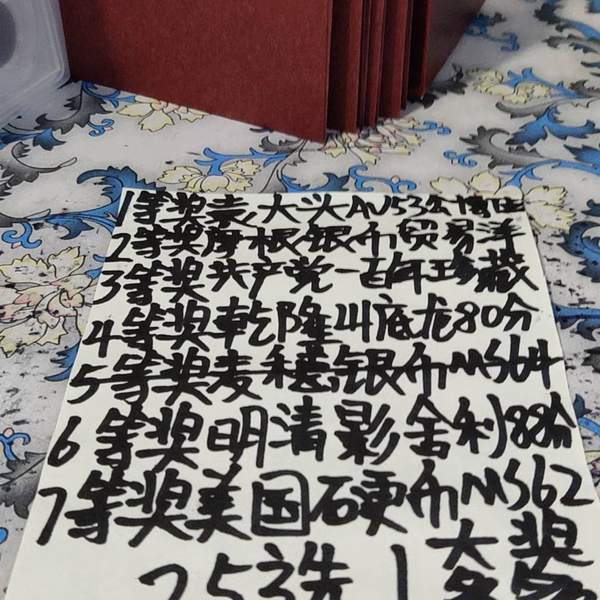 1等奖袁大头AU53公博
2等奖摩根银币贸易洋
3等奖共产党一百年珍藏
4等奖乾隆川底龙80分
5等奖麦穗银币MS64
6等奖明清影舍利88分
7等奖美国硬币MS62
25选1大奖